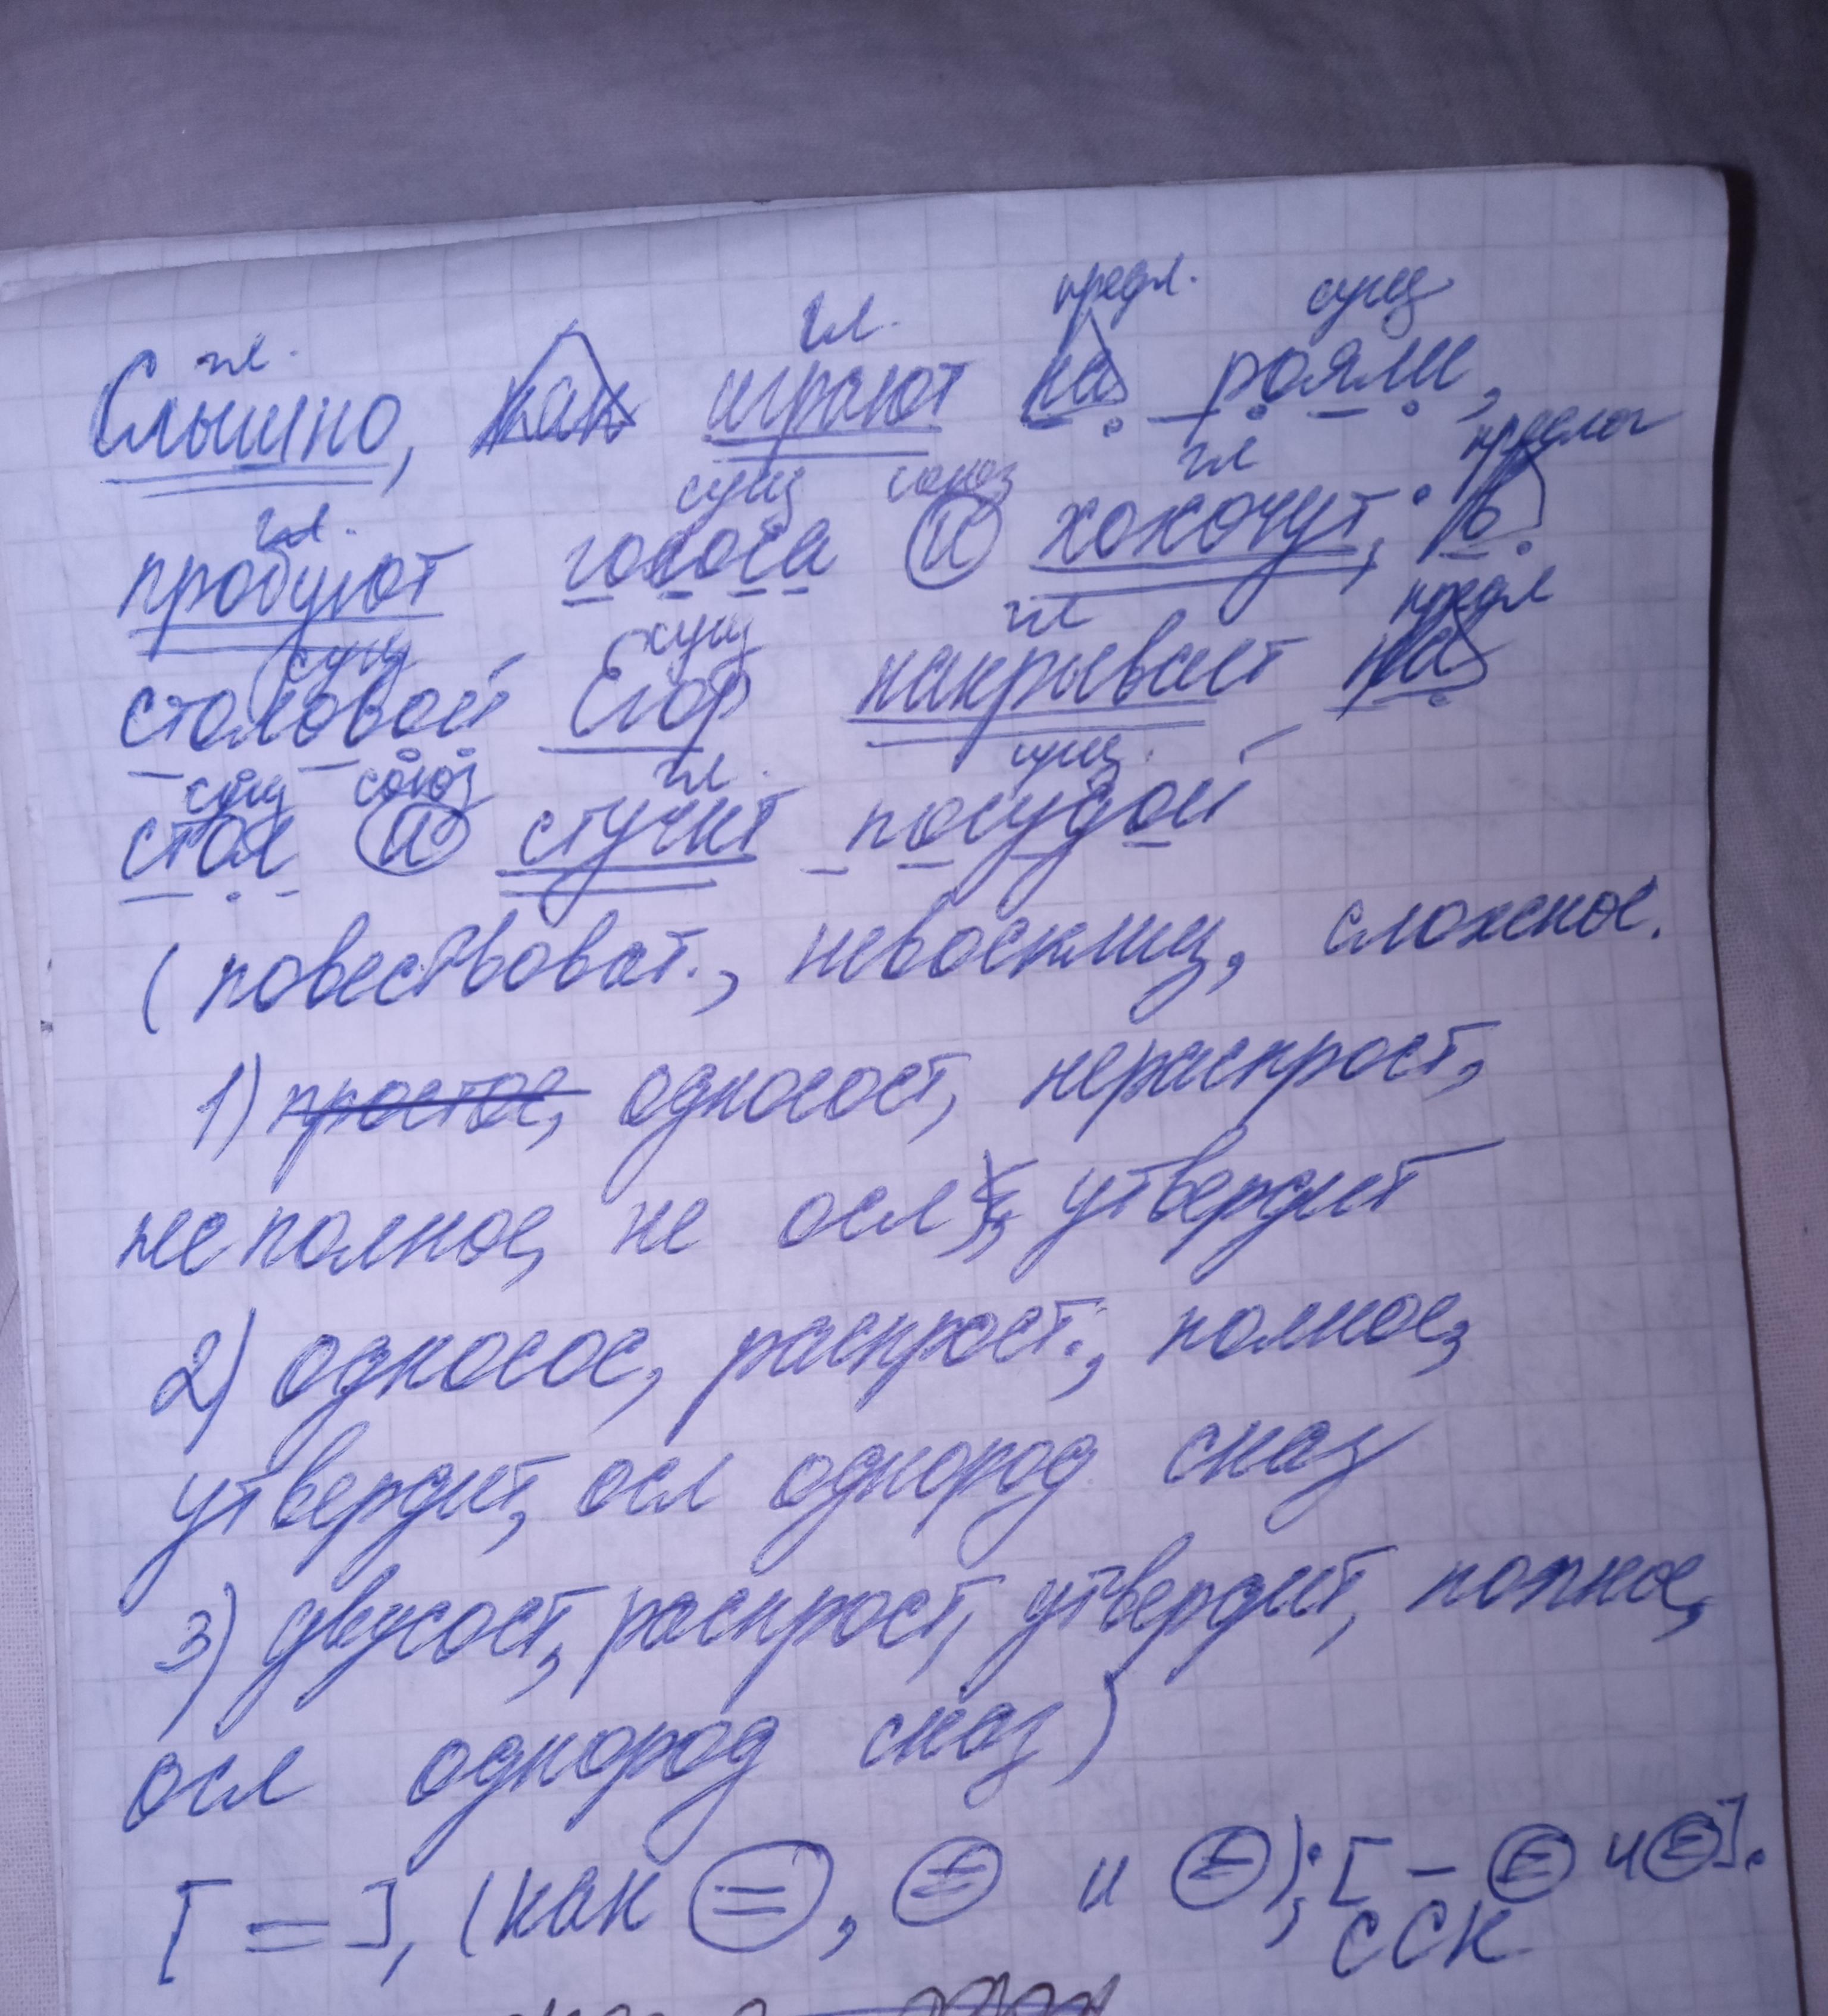 предл. сущ
гл. гл.
Слышно, как играют на рояли,
сущ союз гл предлог
гл.
пробуют голоса и хохочут; в
сущ сущ гл предл
столовой Егор накрывает на
сущ союз гл. сущ.
стол и стучит посудой
(повествоват., невосклиц, сложное.
1) простое, односост, нераспрост,
не полное, не осл, утвердит
2) односос, распрост., полное,
утвердит, осл однород сказ
3) двусост, распрост, утвердит, полное,
осл однород сказ)
[=], (как =, = и =); [– = и =].
ССК